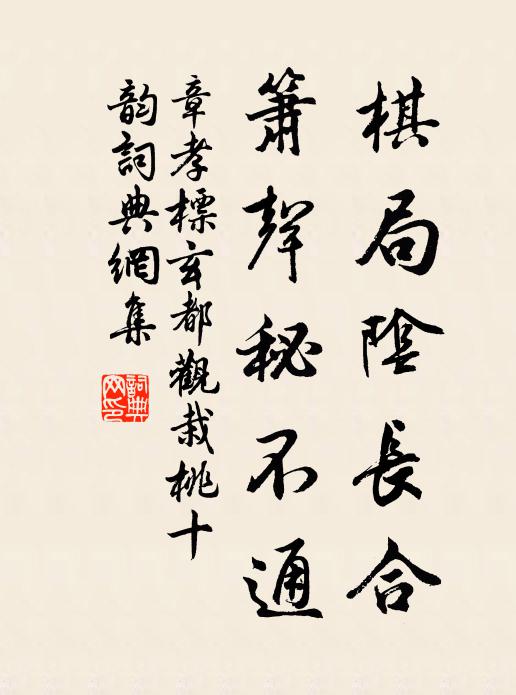 棋局陰長合
簫聲秘不通
章孝標玄都觀栽桃十
韵詞典網集
詞典網印